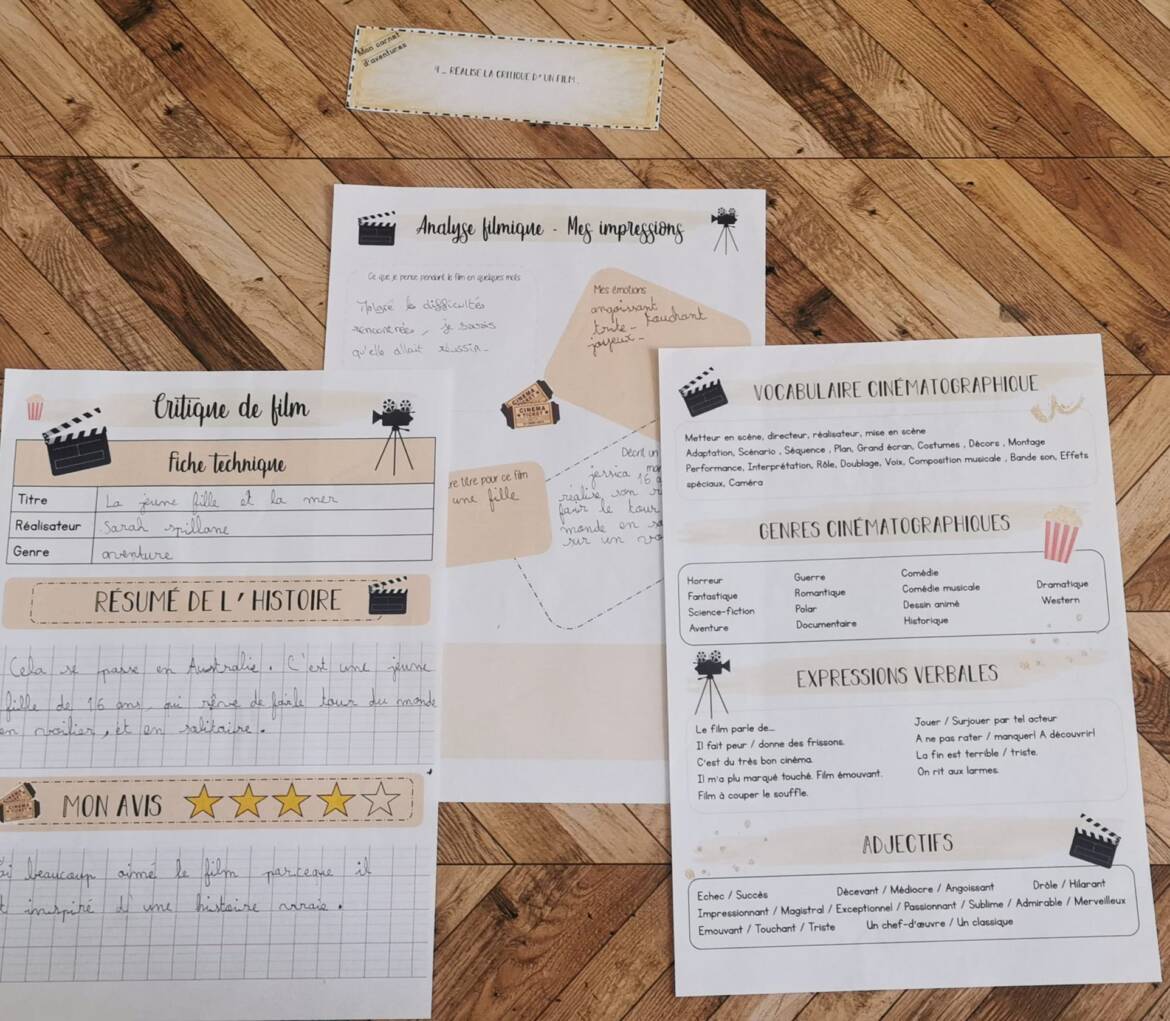 Mon carnet
d'aventures
9_ RÉALISE LA CRITIQUE D'UN FILM.
Analyse filmique - Mes impressions
Ce que je pense pendant le film en quelques mots
Malgré les difficultés
rencontrées, je savais
qu'elle allait réussir.
Mes émotions
angoissant
triste - touchant
joyeux -
CINEMA TICKET
re titre pour ce film
une fille
Décrit un
jessica
16 a
réalise son r
faire le tour
monde en so
sur un vo
Critique de film
Fiche technique
Titre La jeune fille et la mer
Réalisateur Sarah spillane
Genre aventure
RÉSUMÉ DE L'HISTOIRE
Cela se passe en Australie. C'est une jeune
fille de 16 ans, qui rêve de faire le tour du monde
en voilier, et en solitaire.
MON AVIS
beaucoup aimé le film parceque il
inspiré d'une histoire vraie.
VOCABULAIRE CINÉMATOGRAPHIQUE
Metteur en scène, directeur, réalisateur, mise en scène
Adaptation, Scénario , Séquence , Plan, Grand écran, Costumes , Décors , Montage
Performance, Interprétation, Rôle, Doublage, Voix, Composition musicale , Bande son, Effets
spéciaux, Caméra
GENRES CINÉMATOGRAPHIQUES
Horreur
Fantastique
Science-fiction
Aventure
Guerre
Romantique
Polar
Documentaire
Comédie
Comédie musicale
Dessin animé
Historique
Dramatique
Western
EXPRESSIONS VERBALES
Le film parle de...
Il fait peur / donne des frissons.
C'est du très bon cinéma.
Il m'a plu marqué touché. Film émouvant.
Film à couper le souffle.
Jouer / Surjouer par tel acteur
A ne pas rater / manquer! A découvrir!
La fin est terrible / triste.
On rit aux larmes.
ADJECTIFS
Echec / Succès Décevant / Médiocre / Angoissant Drôle / Hilarant
Impressionnant / Magistral / Exceptionnel / Passionnant / Sublime / Admirable / Merveilleux
Emouvant / Touchant / Triste Un chef-d'œuvre / Un classique